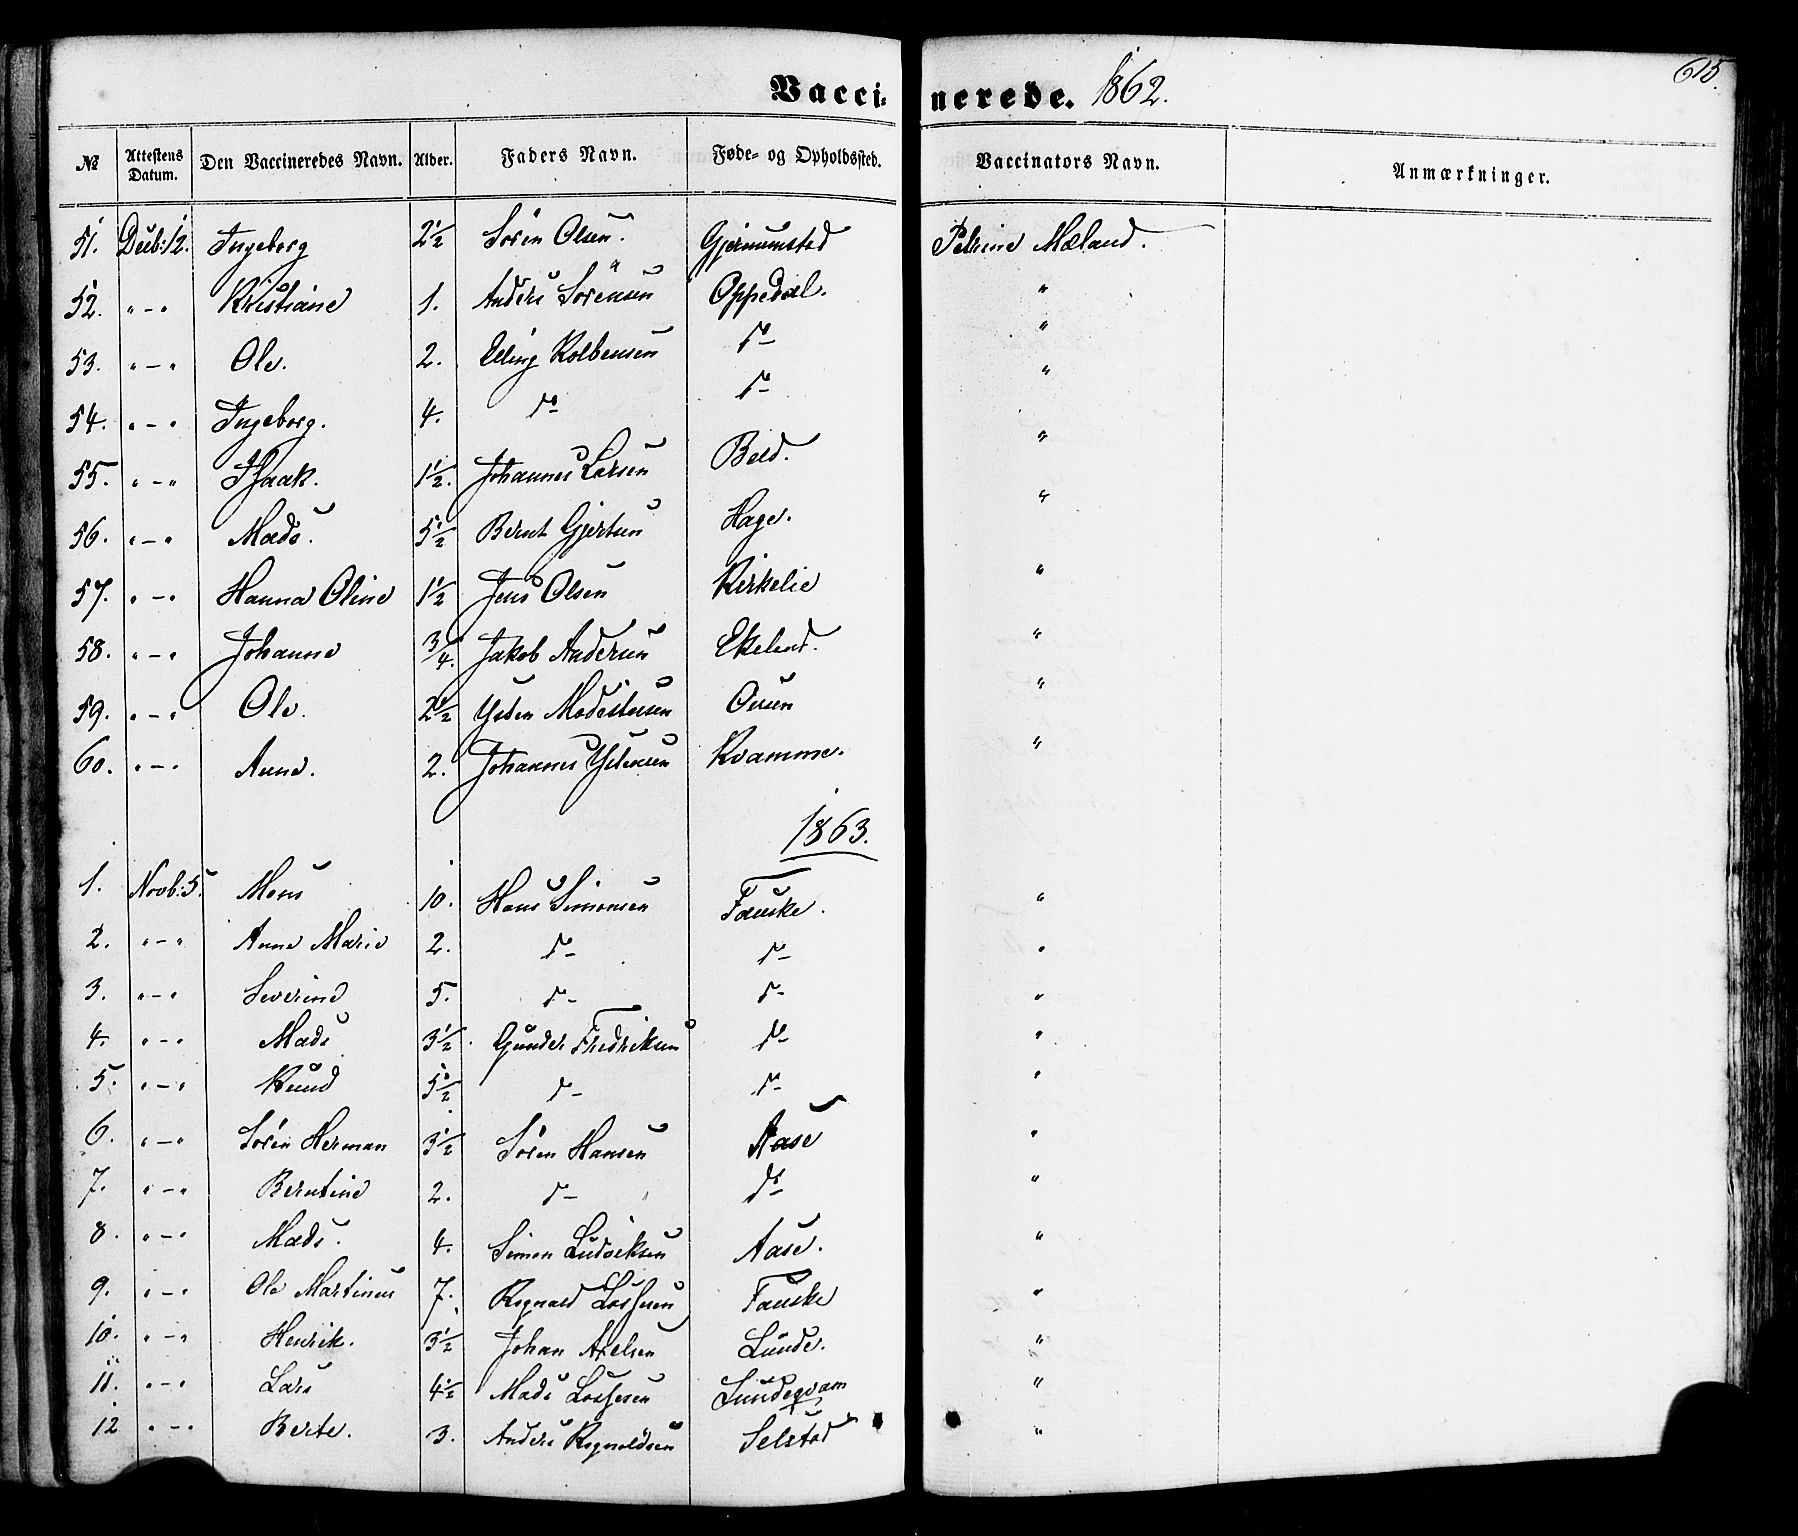 Vaccinerede. 1862.
615.
№ Attestens Datum. Den Vaccineredes Navn. Alder. Faders Navn. Føde- og Opholdssted. Vaccinators Navn. Anmærkninger.
51. Decb: 12. Ingeborg 2½ Sören Olsen. Petrine Mæland.
52. " - " Kristiane 1. Anders Sörensen Oppedal. "
53. " - " Ole. 2. Elling Kolbensen do "
54. " - " Ingeborg. 4. do do "
55. " - " Isaak. 1½. Johannes Larsen "
56. " - " Mads. 5½ Bernt Gjertsen Hage. "
57. " - " Hanna Oline 1½ Jens Olsen Kirkelie "
58. " - " Johanne 3/4. Jakob Andersen Ekeland. "
59. " - " Ole. 2½ Ysten Modestusen "
60. " - " Anne. 2. Johannes Ystensen Kvamme. "
1863.
1. Novb: 5. Mons 10. Hans Simonsen Fauske. "
2. " - " Anne Marie 2. do do "
3. " - " Severine 5. do do "
4. " - " Mads 3½. Gunder Fredriksen do "
5. " - " Knud 5½ do do "
6. " - " Sören Herman 3½ Sören Hansen Aase "
7. " - " Berntine 2. do do "
8. " - " Mads. 4. Simon Ludviksen Aase. "
9. " - " Ole Martinus 7. Rognald Lassesen Fauske "
10. " - " Henrik. 3½ Johan Axelsen Lunde. "
11. " - " Lars 4½ Mads Lassesen Lundeqvam "
12 " - " Berte. 3. Anders Rognaldsen Selstad "